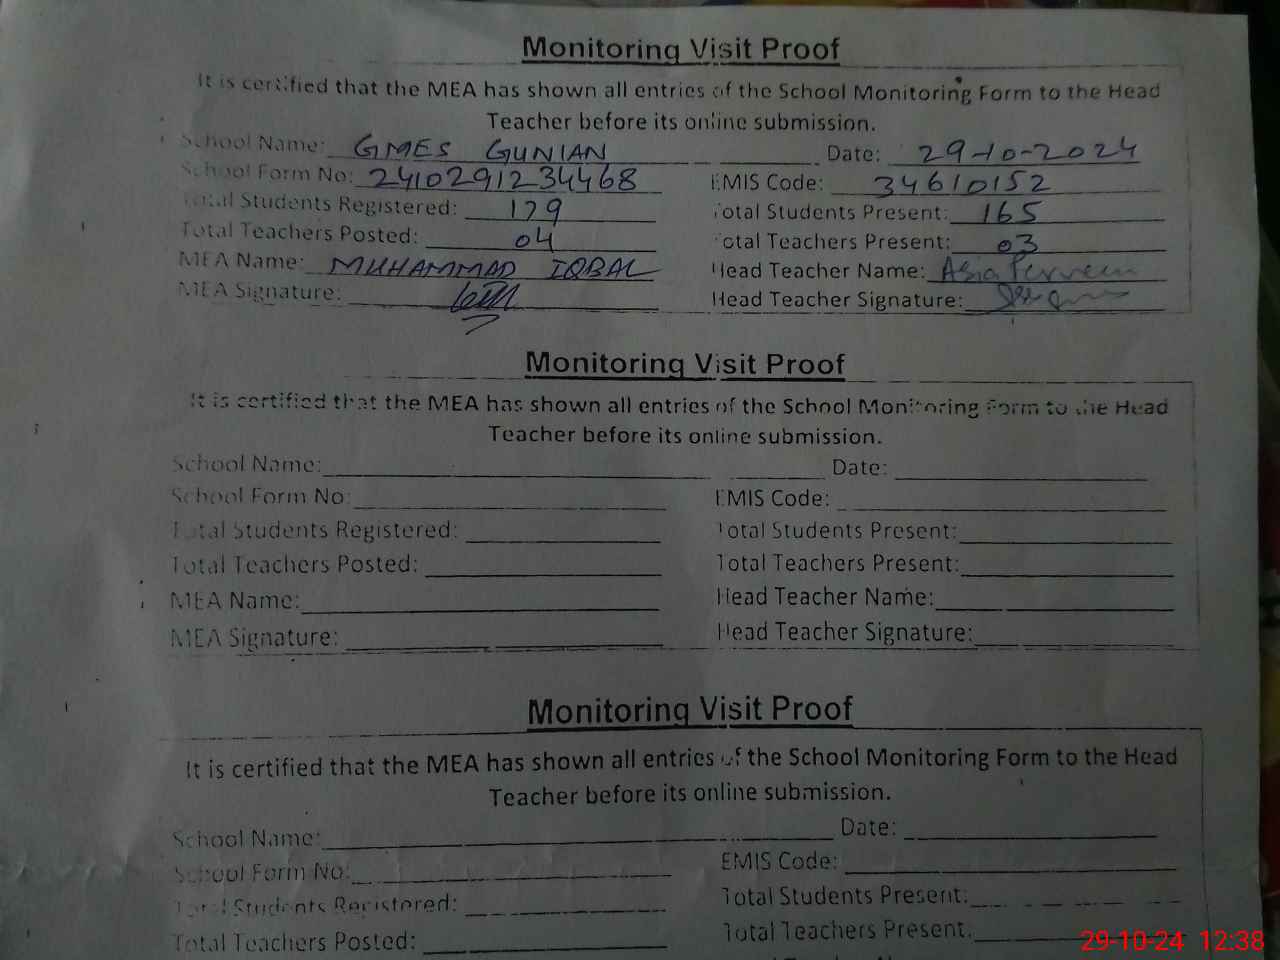 Monitoring Visit Proof
It is certified that the MEA has shown all entries of the School Monitoring Form to the Head
Teacher before its online submission.
School Name: GMES GUNIAN Date: 29-10-2024
School Form No: 2410291234468 EMIS Code: 34610152
Total Students Registered: 179 Total Students Present: 165
Total Teachers Posted: 04 Total Teachers Present: 03
MEA Name: MUHAMMAD IQBAL Head Teacher Name: Asia Perveen
MEA Signature: Head Teacher Signature:
Monitoring Visit Proof
It is certified that the MEA has shown all entries of the School Monitoring Form to the Head
Teacher before its online submission.
School Name: Date:
School Form No: EMIS Code:
Total Students Registered: Total Students Present:
Total Teachers Posted: Total Teachers Present:
MEA Name: Head Teacher Name:
MEA Signature: Head Teacher Signature:
Monitoring Visit Proof
It is certified that the MEA has shown all entries of the School Monitoring Form to the Head
Teacher before its online submission.
School Name: Date:
School Form No: EMIS Code:
Total Students Registered: Total Students Present:
Total Teachers Posted: Total Teachers Present.
29-10-24 12:38